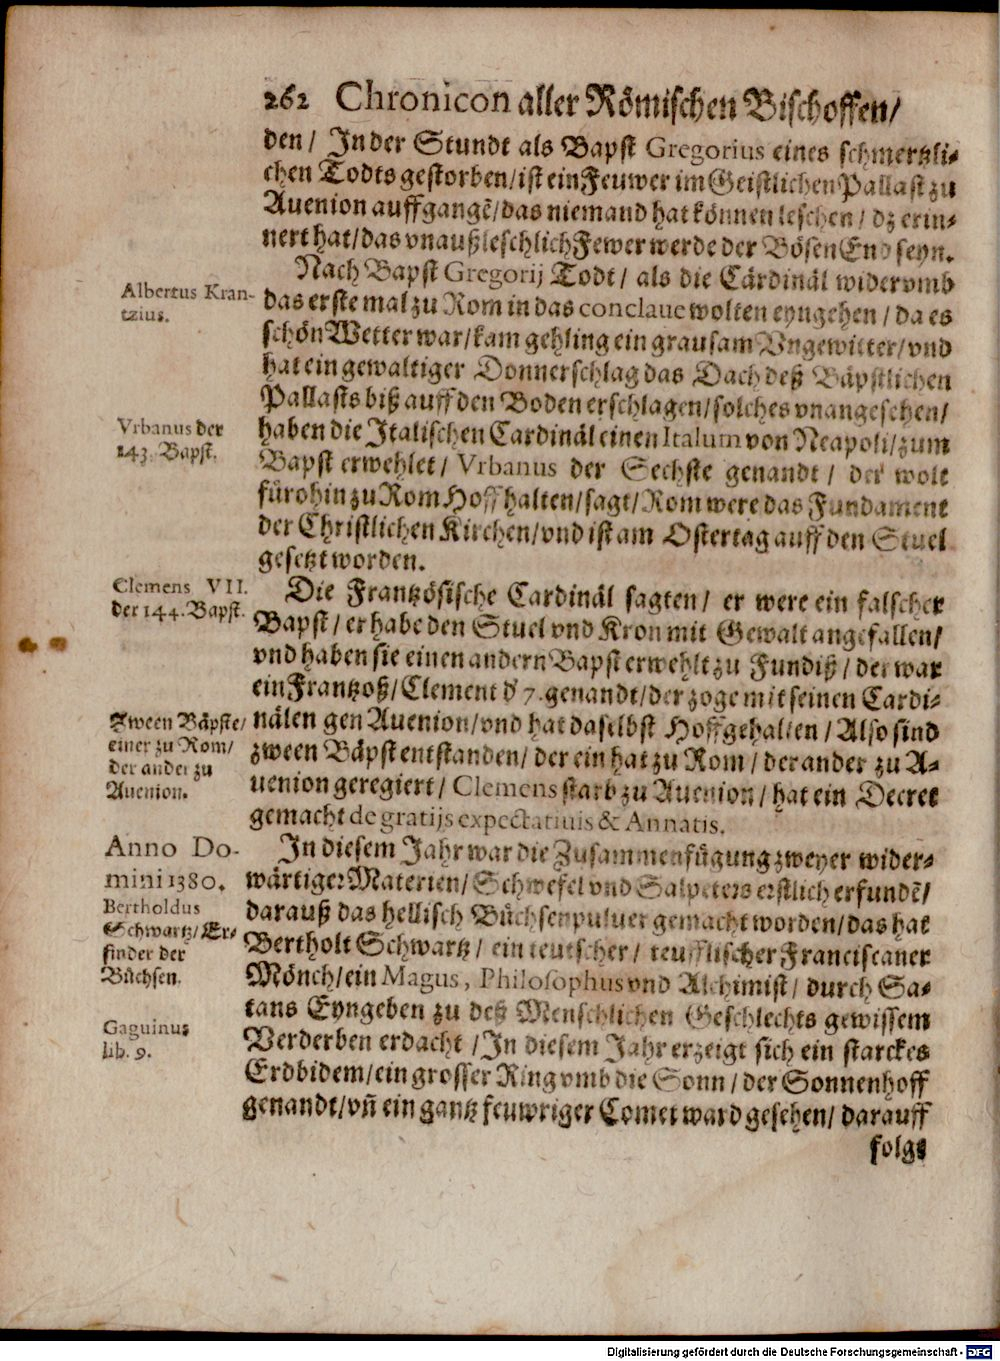 262 Chronicon aller Römischen Bischoffen/
den/ In der Stundt als Bapst Gregorius eines schmertzli-
chen Todts gestorben/ ist ein Feuwer im Geistlichen Pallast zu
Auenion auffgangē/ das niemand hat können leschen/ dz erin-
nert hat/ das vnaußleschlich Fewer werde der Bösen End seyn.
Nach Bapst Gregorij Todt/ als die Cärdinäl widervmb
das erste mal zu Rom in das conclaue wolten eyngehen/ da es
schön Wetter war/ kam gehling ein grausam Vngewitter/ vnd
hat ein gewaltiger Donnerschlag das Dach deß Bäpstlichen
Pallasts biß auff den Boden erschlagen/ solches vnangesehen/
haben die Italischen Cardinäl einen Italum von Neapoli/ zum
Bapst erwehlet/ Vrbanus der Sechste genandt/ der wolt
fürohin zu Rom Hoff halten/ sagt/ Rom were das Fundament
der Christlichen Kirchen/ vnd ist am Ostertag auff den Stuel
gesetzt worden.
Die Frantzösische Cardinäl sagten/ er were ein falscher
Bapst/ er habe den Stuel vnd Kron mit Gewalt angefallen/
vnd haben sie einen andern Bapst erwehlt zu Fundiß/ der war
ein Frantzoß/ Clement d' 7. genandt/ der zoge mit seinen Cardi-
nälen gen Auenion/ vnd hat daselbst Hoff gehalten/ Also sind
zween Bäpst entstanden/ der ein hat zu Rom/ der ander zu A-
uenion geregiert/ Clemens starb zu Auenion/ hat ein Decret
gemacht de gratijs expectatiuis & Annatis.
In diesem Jahr war die Zusammenfügung zweyer wider-
wärtiger Materien/ Schwefel vnd Salpeters erstlich erfundē/
darauß das hellisch Büchsenpuluer gemacht worden/ das hat
Bertholt Schwartz/ ein teutscher/ teufflischer Franciscaner
Mönch/ ein Magus, Philosophus vnd Alchimist/ durch Sa-
tans Eyngeben zu deß Menschlichen Geschlechts gewissem
Verderben erdacht/ In diesem Jahr erzeigt sich ein starckes
Erdbidem/ ein grosser Ring vmb die Sonn/ der Sonnenhoff
genandt/ vñ ein gantz feuwriger Comet ward gesehen/ darauff
folgt
Albertus Kran-
tzius.
Vrbanus der
143. Bapst.
Clemens VII.
der 144. Bapst.
Zween Bäpste/
einer zu Rom/
der ander zu
Auenion.
Anno Do-
mini 1380.
Bertholdus
Schwartz/ Er-
finder der
Büchsen.
Gaguinus
lib. 9.
Digitalisierung gefördert durch die Deutsche Forschungsgemeinschaft - DFG